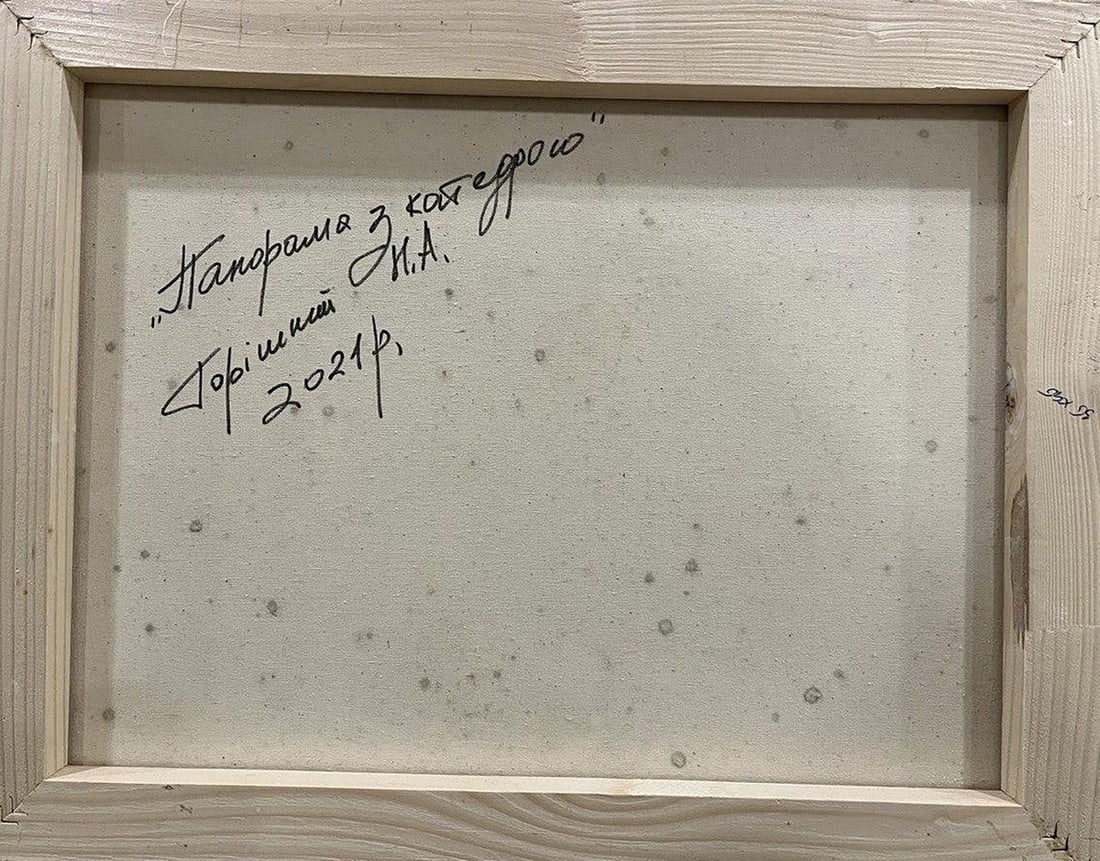 „Панорама з катедрою"
Горішній Н.А.
2021р.